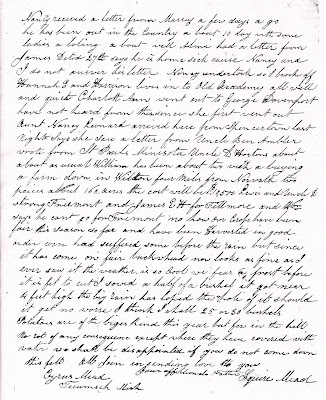 Nancy received a letter from Mercy a few days a go
he has been out in the Country a bout 10 day with some
ladies a a bout well Anne had a letter from
James dated 27th says he is home sick cause Nancy and
I do not answer his letter Nancy undertook so I broke off
Hannah E and Harrison lives in to Old Academy all well
and quiet Charlott Ann went out to George Davenport
have not heard from thee since she first went out
Aunt Nancy Leonard arrived here from Spencertown last
night Says she saw a letter from Uncle Ben Ambler
wrote from St Pauls Minesota Uncle D Hortons about
about as usual William has been about to a buying
a farm down in Wilton four Miles from Norwalk two
peices about 160 acres the cost will be 7,000 Lewis and Uncle D
strong Freemont and James E H for Fillmore and Wm
says he cant go for Freemont no how our Crops have been
fair this season so far and have been harvested in good
order corn had suffered some before the rain but since
it has come on fair buckwhead now looks as fine as I
ever saw it the weather is so cool we fear a frost before
it is fit to cut I sowed a half of a bushel it got near
4 feet high the big rain has loped the hole of it should
it get no worse I think I shall 25 or 30 bushels
Potatoes are of the bigest kind this year but few in the hill
no rot of any consequence except where they have covered with
water we shall be disappointed if you do not come down
this fall All join in sending love to you
from affectionate Father Squire Mead
Cyrus Mead
Tecumseh Mich